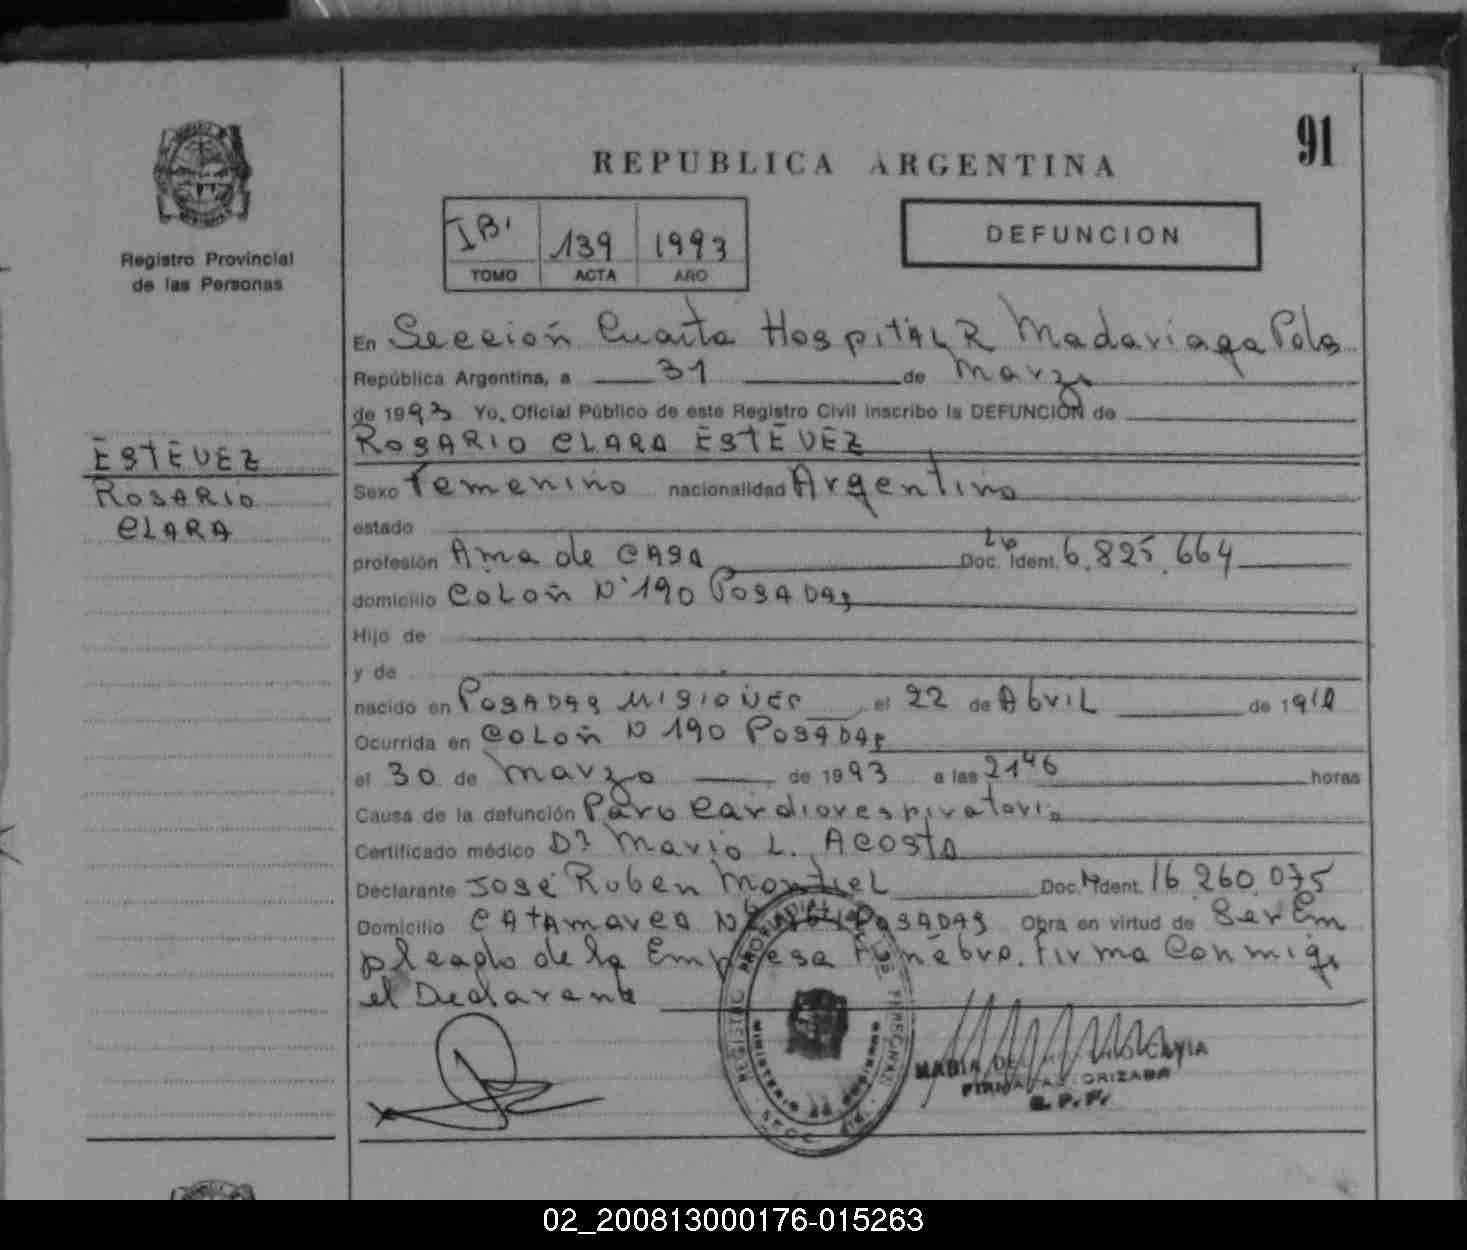 91
REPUBLICA ARGENTINA
DEFUNCION
139 1993
TOMO ACTA AÑO
Registro Provincial
de las Personas
ESTÉVEZ
ROSARIO
CLARA
En Sección Cuarta Hospital R Madariaga Pdas
República Argentina, a 31 de Marzo
de 1993 Yo, Oficial Público de este Registro Civil inscribo la DEFUNCION de
ROSARIO CLARA ESTÉVEZ
Sexo Femenino nacionalidad Argentina
estado
profesión Ama de CASA Doc. Ident. 6.825.664
domicilio COLON N° 190 POSADAS
Hijo de
y de
nacido en POSADAS MISIONES el 22 de Abril de 19
Ocurrida en COLON N 190 POSADAS
el 30 de Marzo de 1993 a las 21 46 horas
Causa de la defunción Paro Cardiorespiratorio
Certificado médico Dr Mario L. ACOSTA
Declarante José Ruben Montiel Doc. Ident. 16.260.075
Domicilio CATAMARCA N° POSADAS Obra en virtud de Ser Em
pleado de la Empresa Fúnebre. Firma Conmigo
el Declarante
REGISTRO PROVINCIAL DE LAS PERSONAS
MINISTERIO DE GOBIERNO
MARIA DEL
FIRMA AUTORIZADA
R. P. P.
02_200813000176-015263